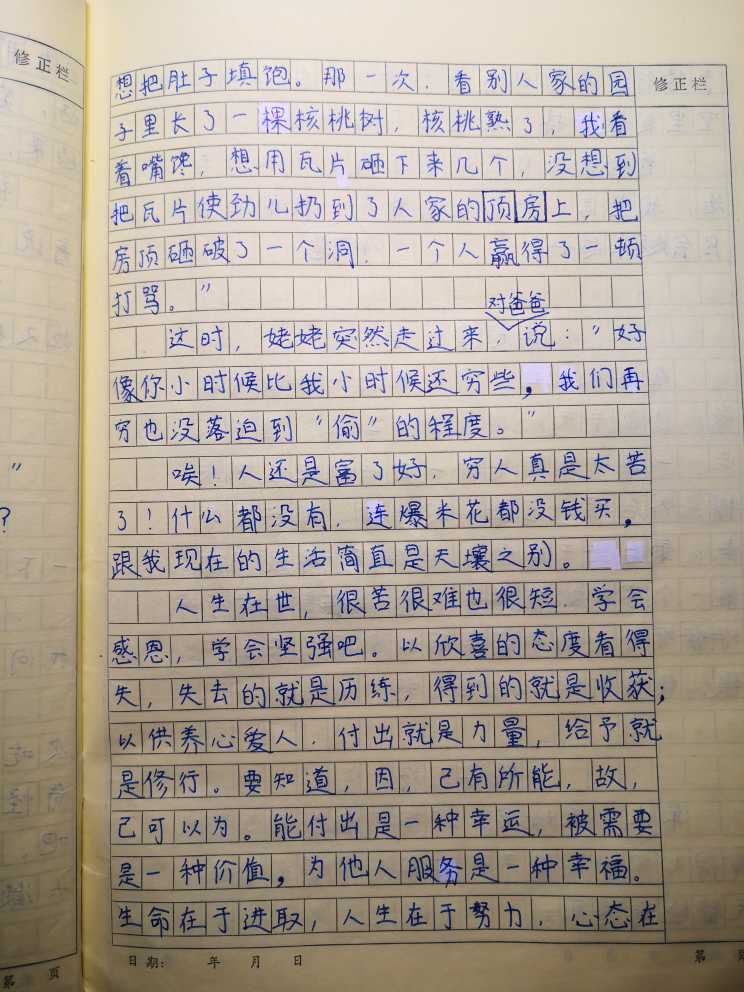 修正栏
修正栏
想把肚子填饱。那一次，看别人家的园
子里长了一棵核桃树，核桃熟了，我看
着嘴馋，想用瓦片砸下来几个，没想到
把瓦片使劲儿扔到了人家的顶房上，把
房顶砸破了一个洞，一个人赢得了一顿
打骂。”
对爸爸
这时，姥姥突然走过来，说：“好
像你小时候比我小时候还穷些，我们再
穷也没落迫到“偷”的程度。”
唉！人还是富了好，穷人真是太苦
了！什么都没有，连爆米花都没钱买，
跟我现在的生活简直是天壤之别。
人生在世，很苦很难也很短，学会
感恩，学会坚强吧。以欣喜的态度看得
失，失去的就是历练，得到的就是收获；
以供养心爱人，付出就是力量，给予就
是修行。要知道，因，己有所能，故，
己可以为。能付出是一种幸运，被需要
是一种价值，为他人服务是一种幸福。
生命在于进取，人生在于努力，心态在
日期： 年 月 日
第 页
第